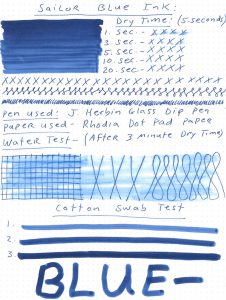 Sailor Blue Ink:
Dry Time: (5 seconds)
1. Sec. - XXXX
3. Sec. - XXXX
5. Sec. - XXXX
10. Sec. - XXXX
20. Sec. - XXXX
XXXXXXXXXXXXXXXXXXXX
Pen used: J. Herbin Glass Dip Pen
Paper used - Rhodia Dot Pad Paper
Water Test - (After 3 minute Dry Time)
Cotton Swab Test
1.
2.
3.
BLUE-